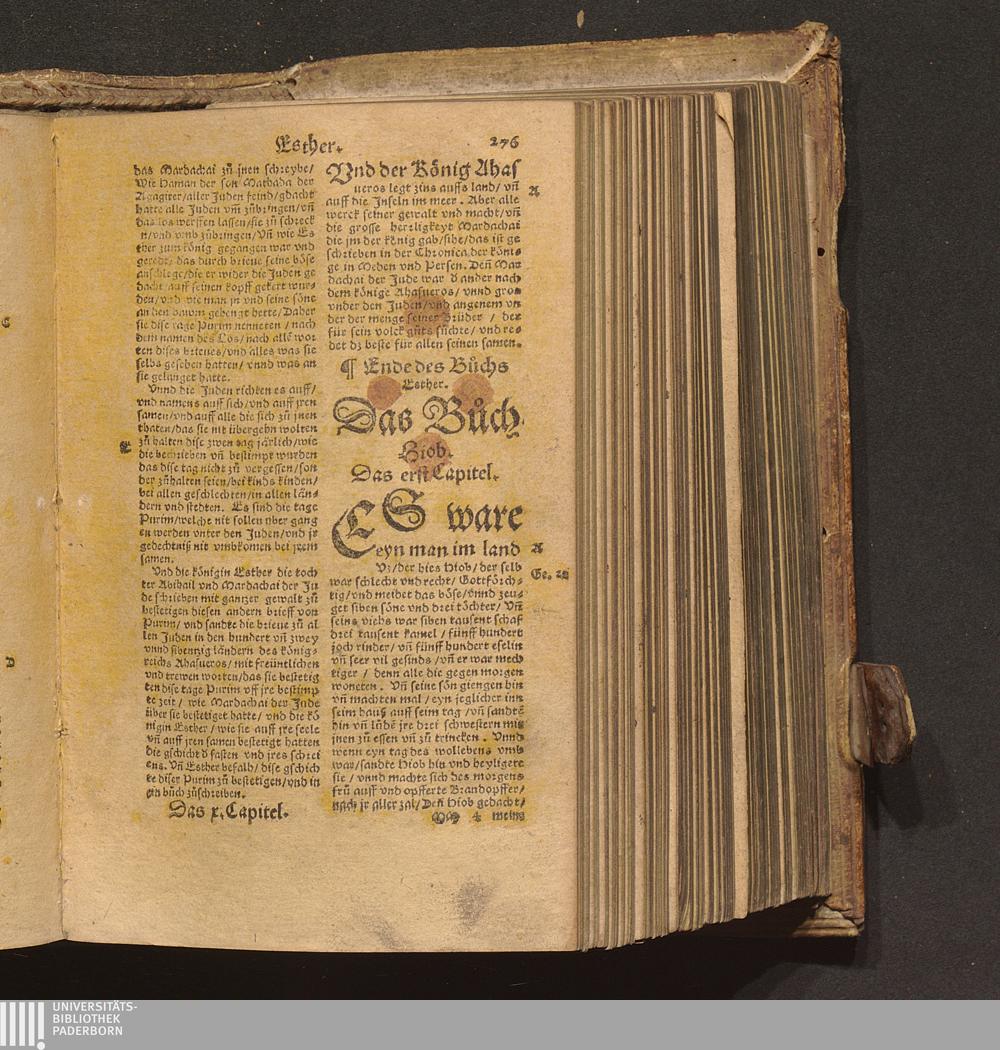 Esther.
276
das Mardachai zů jnen schreybe/
Wie Haman der son Madada der
Agagiter/aller Juden feind/gdacht
hatte alle Juden vm̃ zůbringen/vñ
das los werffen lassen/sie zů schreck
n/vnd vmb zůbringen/Vñ wie Es
ther zum König gegangen war vnd
geredt/das durch brieue seine böse
anschlege/die er wider die Juden ge
dacht auff seinen kopff gekert wur-
den/vnd wie man jn vnd seine söne
an den bawm gehengt hette/Daher
sie dise tage Purim nenneten/nach
dem namen des Los/nach allē wor
ten dises brieues/vnd alles was sie
selbs gesehen hatten/vnnd was an
sie gelanget hatte.
Vnnd die Juden richten es auff/
vnd namens auff sich/vnd auff jren
samen/vnd auff alle die sich zů jnen
thaten/das sie nit übergehn wolten
zů halten dise zwen tag järlich/wie
die beschrieben vñ bestimpt wurden
das dise tag nicht zů vergessen/son
der zůhalten seien/bei kinds kinden/
bei allen geschlechten/in allen län-
dern vnd stedten. Es sind die tage
Purim/welche nit sollen über gang
en werden vnter den Juden/vnd jr
gedechtniß nit vmbkomen bei jrem
samen.
Vnd die königin Esther die toch
ter Abihail vnd Mardachai der Ju
de schrieben mit ganzer gewalt zů
bestetigen diesen andern brieff von
Purim/vnd sandte die brieue zů al
len Juden in den hundert vñ zwey
vnnd sibentzig ländern des König-
reichs Ahasueros/mit freüntlichen
vnd trewen worten/das sie bestetig
ten dise tage Purim vff jre bestimp
te zeit/wie Mardachai der Jude
über sie bestetiget hatte/vnd die kö
nigin Esther/wie sie auff jre seele
vñ auff jren samen bestetigt hatten
die gschicht d fasten vnd jres schrei
ens. Vñ Esther befalh/dise gschich
te diser Purim zů bestetigen/vnd in
ein bůch zůschreiben.
Das x. Capitel.
E
Vnd der König Ahas
ueros legt zins auffs land/vñ
A
auff die Inseln im meer. Aber alle
werck seiner gewalt vnd macht/vñ
die grosse herrligkeyt Mardachai
die jm der könig gab/sihe/das ist ge
schrieben in der Chronica der köni-
ge in Meden vnd Persen. Deñ Mar
dachai der Jude war d ander nach
dem könige Ahasueros/vnnd gros
vnder den Juden/vnd angenem vn
der der menge seiner brüder/der
für sein volck gůts sůchte/vnd re-
det dz beste für allen seinen samen.
¶ Ende des Bůchs
Esther.
Das Bůch
Hiob.
Das erst Capitel.
ES ware
eyn man im land
A
Vz/der hies Hiob/der selb
Ge. 22
war schlecht vnd recht/Gottförch-
tig/vnd meidet das böse/vnnd zeu-
get siben söne vnd drei töchter/Vñ
seins viehs war siben tausent schaf
drei tausent kamel/fünff hundert
joch rinder/vñ fünff hundert eselin
vñ seer vil gesinds/vñ er war mech
tiger/denn alle die gegen morgen
woneten. Vñ seine sön giengen hin
vñ machten mal/eyn jeglicher inn
seim hauß auff seim tag/vñ sandtē
hin vñ lůdē jre drei schwestern mit
jnen zů essen vñ zů trincken. Vnnd
wenn eyn tag des wollebens vmb
war/sandte Hiob hin vnd heyligete
sie/vnnd machte sich des morgens
frů auff vnd opfferte Brandopffer/
nach jr aller zal/Deñ Hiob gedacht/
4 meine
G
D
UNIVERSITÄTS-
BIBLIOTHEK
PADERBORN